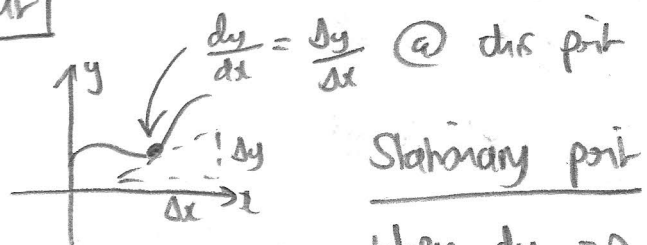 dy/dx = Δy/Δx @ this point
y
Δy
Δx
x
Stationary point
when dy = 0